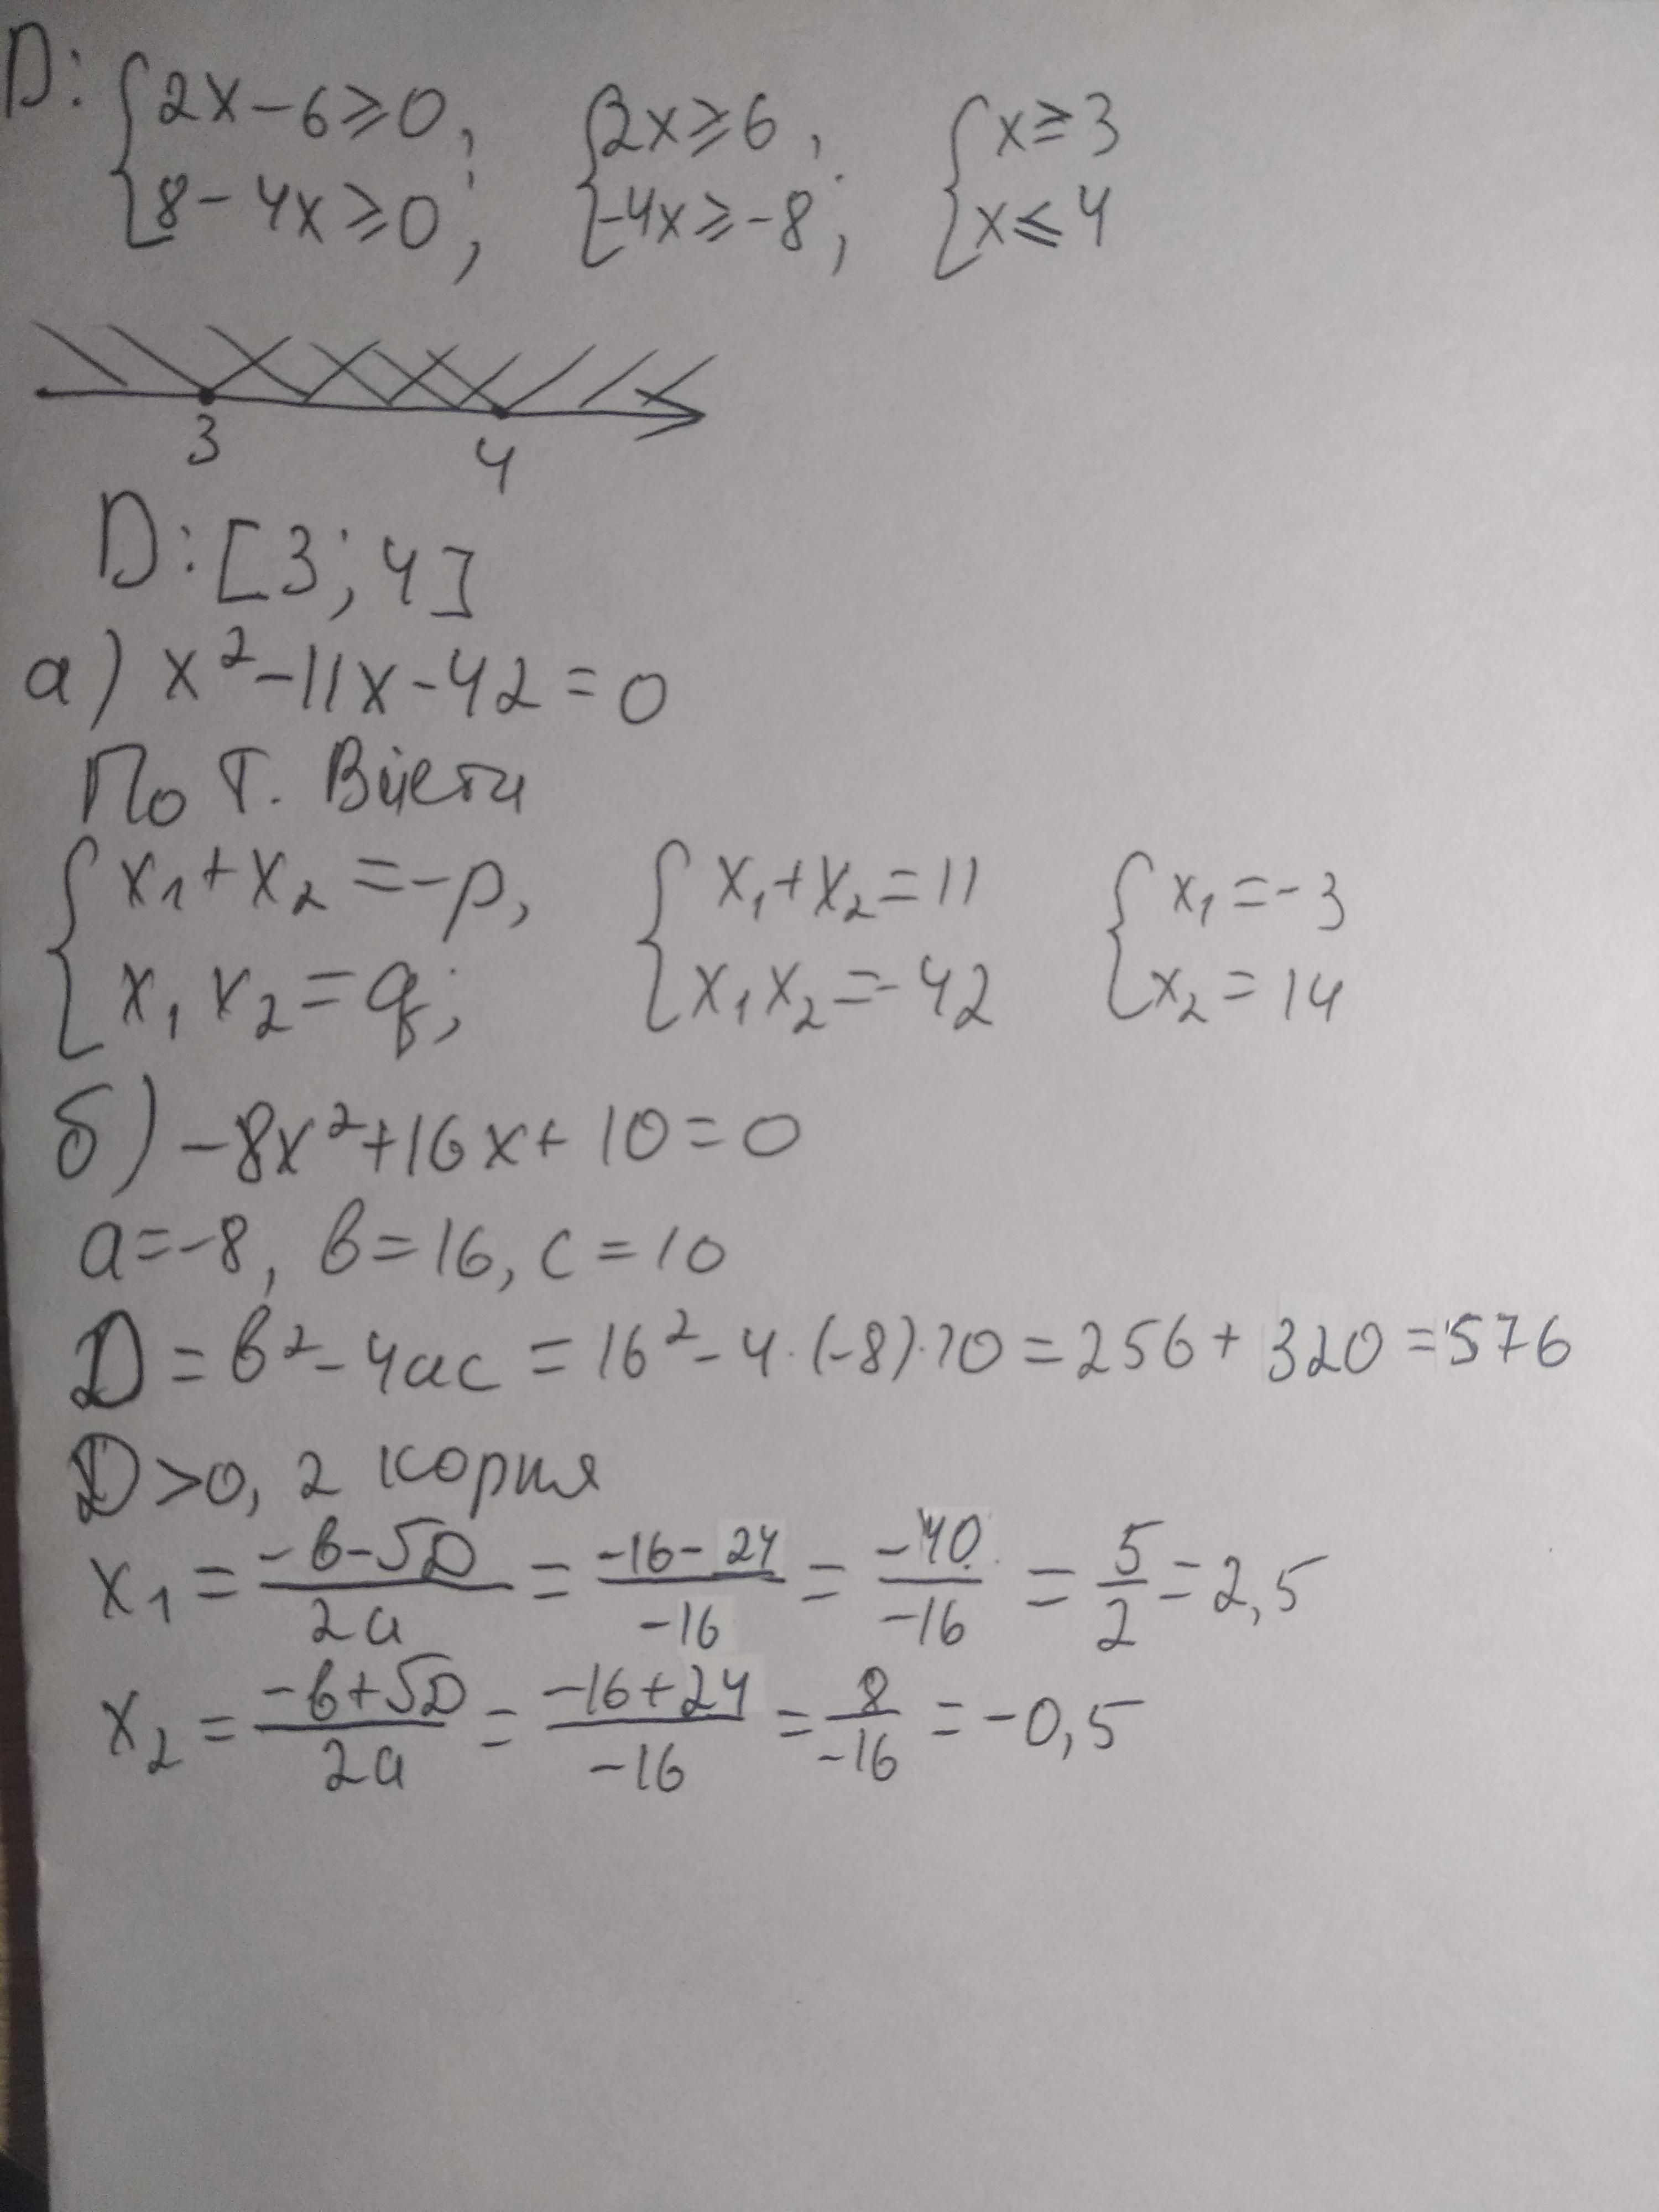 D: { 2x - 6 ⩾ 0, { 2x ⩾ 6, { x ⩾ 3
{ 8 - 4x ⩾ 0; { -4x ⩾ -8; { x ⩽ 4
3 4
D: [3; 4]
а) x² - 11x - 42 = 0
По т. Виета
{ x₁ + x₂ = -p, { x₁ + x₂ = 11 { x₁ = -3
{ x₁ x₂ = q; { x₁ x₂ = -42 { x₂ = 14
б) -8x² + 16x + 10 = 0
a = -8, b = 16, c = 10
D = b² - 4ac = 16² - 4·(-8)·10 = 256 + 320 = 576
D > 0, 2 корня
x₁ = (-b - √D)/(2a) = (-16 - 24)/(-16) = (-40)/(-16) = 5/2 = 2,5
x₂ = (-b + √D)/(2a) = (-16 + 24)/(-16) = 8/(-16) = -0,5